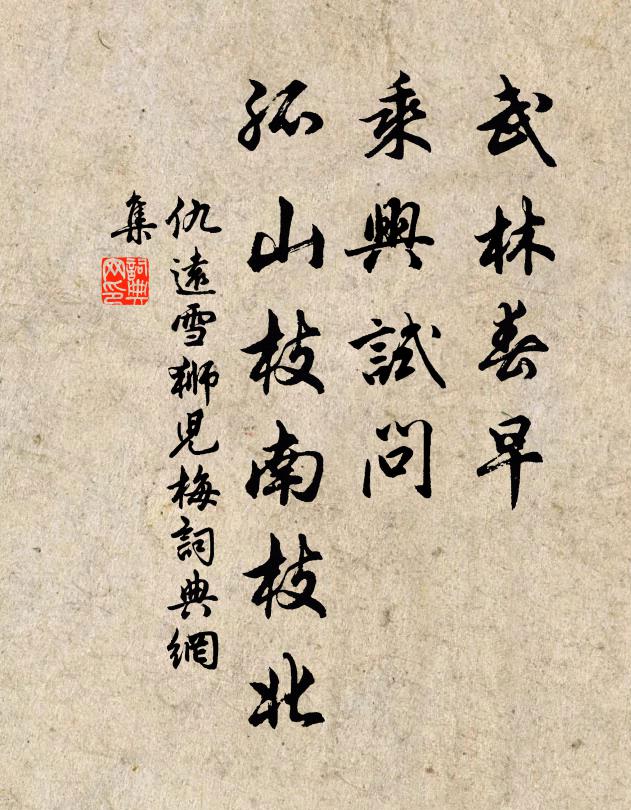 武林春早
乘興試問
孤山枝南枝北
仇遠雪獅兒梅詞典網
集
詞典網印